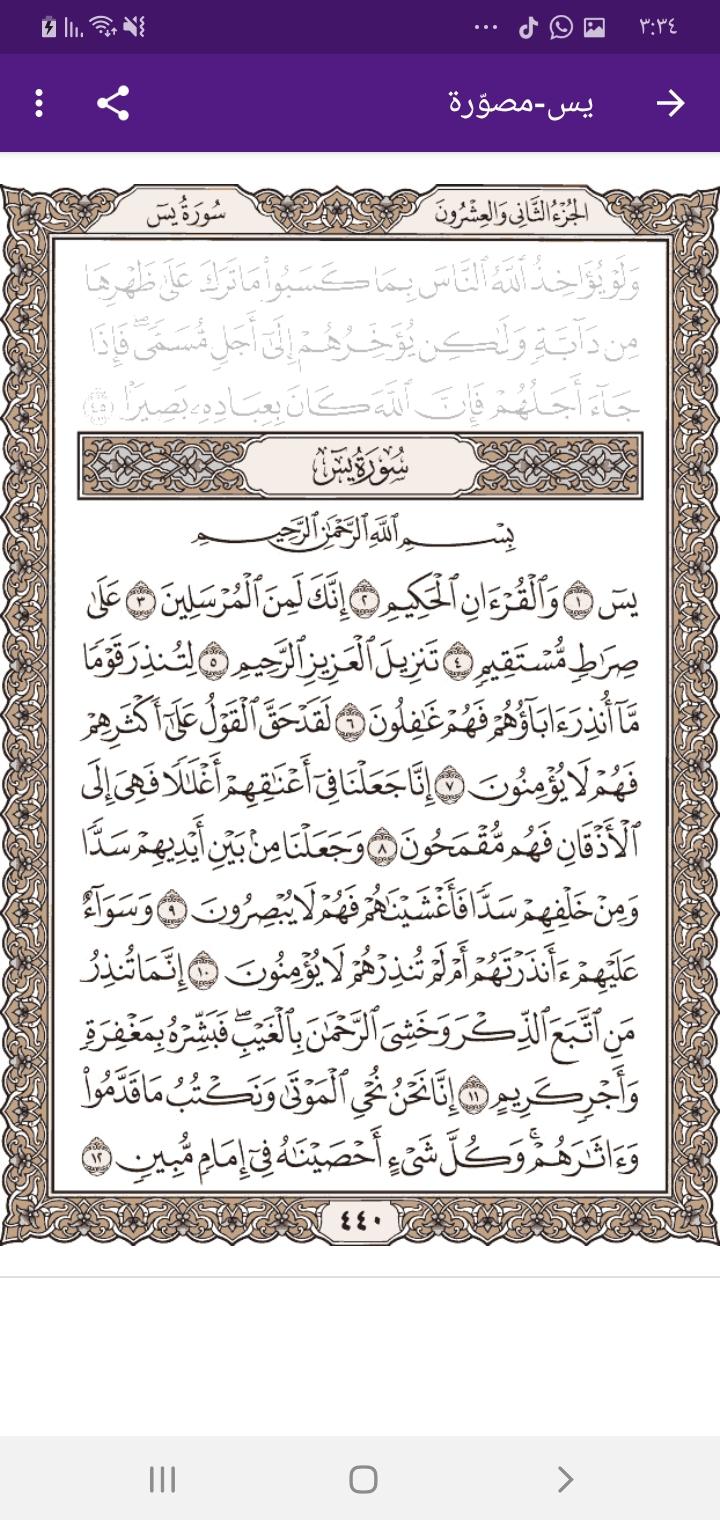 ٣:٣٤
يس-مصوّرة
الجُزْءُ الثَّانِي وَالعِشْرُونَ
سُورَةُ يسٓ
وَلَوْ يُؤَاخِذُ ٱللَّهُ ٱلنَّاسَ بِمَا كَسَبُوا۟ مَا تَرَكَ عَلَىٰ ظَهْرِهَا
مِن دَآبَّةٍ وَلَٰكِن يُؤَخِّرُهُمْ إِلَىٰٓ أَجَلٍ مُّسَمًّى ۖ فَإِذَا
جَآءَ أَجَلُهُمْ فَإِنَّ ٱللَّهَ كَانَ بِعِبَادِهِۦ بَصِيرًۢا ٤٥
سُورَةُ يسٓ
بِسْمِ ٱللَّهِ ٱلرَّحْمَٰنِ ٱلرَّحِيمِ
يسٓ ١ وَٱلْقُرْءَانِ ٱلْحَكِيمِ ٢ إِنَّكَ لَمِنَ ٱلْمُرْسَلِينَ ٣ عَلَىٰ
صِرَٰطٍ مُّسْتَقِيمٍ ٤ تَنزِيلَ ٱلْعَزِيزِ ٱلرَّحِيمِ ٥ لِتُنذِرَ قَوْمًا
مَّآ أُنذِرَ ءَابَآؤُهُمْ فَهُمْ غَٰفِلُونَ ٦ لَقَدْ حَقَّ ٱلْقَوْلُ عَلَىٰٓ أَكْثَرِهِمْ
فَهُمْ لَا يُؤْمِنُونَ ٧ إِنَّا جَعَلْنَا فِىٓ أَعْنَٰقِهِمْ أَغْلَٰلًا فَهِىَ إِلَى
ٱلْأَذْقَانِ فَهُم مُّقْمَحُونَ ٨ وَجَعَلْنَا مِنۢ بَيْنِ أَيْدِيهِمْ سَدًّا
وَمِنْ خَلْفِهِمْ سَدًّا فَأَغْشَيْنَٰهُمْ فَهُمْ لَا يُبْصِرُونَ ٩ وَسَوَآءٌ
عَلَيْهِمْ ءَأَنذَرْتَهُمْ أَمْ لَمْ تُنذِرْهُمْ لَا يُؤْمِنُونَ ١٠ إِنَّمَا تُنذِرُ
مَنِ ٱتَّبَعَ ٱلذِّكْرَ وَخَشِىَ ٱلرَّحْمَٰنَ بِٱلْغَيْبِ ۖ فَبَشِّرْهُ بِمَغْفِرَةٍ
وَأَجْرٍ كَرِيمٍ ١١ إِنَّا نَحْنُ نُحْىِ ٱلْمَوْتَىٰ وَنَكْتُبُ مَا قَدَّمُوا۟
وَءَاثَٰرَهُمْ ۚ وَكُلَّ شَىْءٍ أَحْصَيْنَٰهُ فِىٓ إِمَامٍ مُّبِينٍ ١٢
٤٤٠